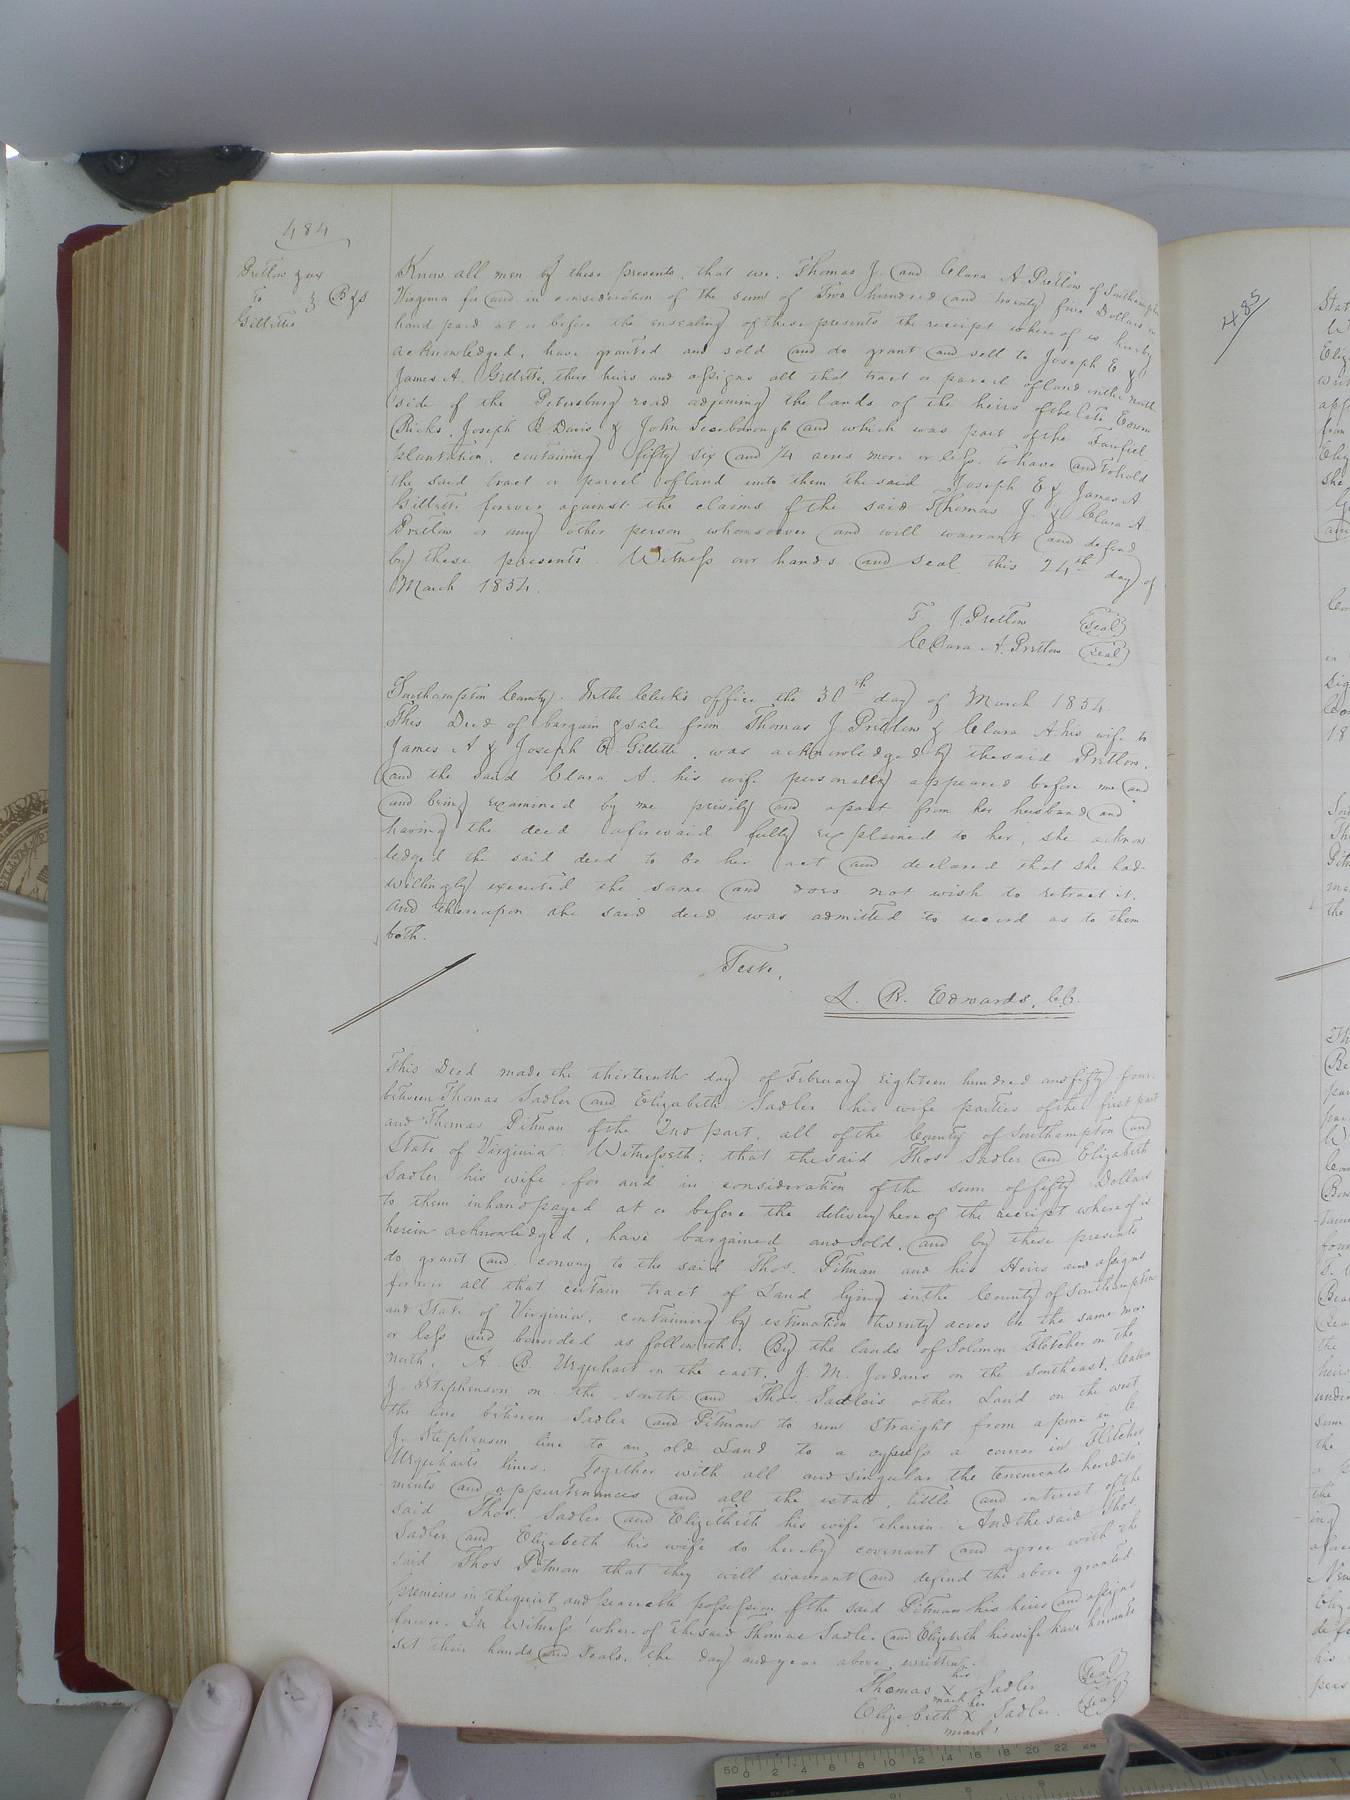 484
Pretlow & ux
To } B & S
Gillettes
Know all men by these presents, that we, Thomas J. and Clara A. Pretlow of Southampton
Virginia for and in consideration of the sum of Two hundred and twenty five Dollars in
hand paid at or before the ensealing of these presents the receipt whereof is hereby
acknowledged, have granted and sold and do grant and sell to Joseph E &
James A. Gillette, their heirs and assigns all that tract or parcel of land on the north
side of the Petersburg road adjoining the lands of the heirs of the late Edwin
Ricks, Joseph B Davis & John Scarborough and which was part of the Fairfiel
plantation, containing fifty six and 1/4 acres more or less. to have and to hold
the said tract or parcel of land unto them the said Joseph E & James A
Gillette forever against the claims of the said Thomas J. & Clara A
Pretlow or any other person whomsoever and will warrant and defend
by these presents. Witness our hands and seal this 24th day of
March 1854.
T. J. Pretlow (Seal)
Clara A. Pretlow (Seal)
Southampton County. In the Clerk's office the 30th day of March 1854
This Deed of bargain & sale from Thomas J. Pretlow & Clara A his wife to
James A & Joseph E Gillette, was acknowledged by the said Pretlow,
and the said Clara A. his wife personally appeared before me and
and being examined by me privily and apart from her husband and
having the deed aforesaid fully explained to her, she acknow
ledged the said deed to be her act and declared that she had
willingly executed the same and does not wish to retract it.
and thereupon the said deed was admitted to record as to them
both.
Teste,
L. R. Edwards, C.C.
This Deed made the thirteenth day of February eighteen hundred and fifty four
between Thomas Sadler and Elizabeth Sadler his wife parties of the first part
and Thomas Pitman of the 2nd part, all of the County of Southampton and
State of Virginia: Witnesseth: that the said Thos Sadler and Elizabeth
Sadler his wife for and in consideration of the sum of fifty Dollars
to them in hand payed at or before the delivery hereof the receipt whereof is
herein acknowledged, have bargained and sold, and by these presents
do grant and convey to the said Thos. Pitman and his Heirs and assigns
forever all that certain tract of Land lying in the County of Southampton
and State of Virginia, containing by estimation twenty acres be the same more
or less and bounded as followeth. By the lands of Solomon Fletcher on the
north, A. B. Urquhart on the east, J. M. Jordans on the southeast,
J. Stephenson on the south and Thos. Sadlers other Land on the west
the line between Sadler and Pitman to run straight from a pine in C
J. Stephenson line to an old Land to a cypress a corner in Fletcher
Urquharts lines. Together with all and singular the tenements heredita
ments and appurtenances and all the estate, tittle and interest of the
said Thos. Sadler and Elizabeth his wife therein. And the said Thos.
Sadler and Elizabeth his wife do hereby covenant and agree with the
said Thos Pitman that they will warrant and defend the above granted
premises in the quiet and peaceable possession of the said Pitman his heirs and assigns
forever. In Witness whereof the said Thomas Sadler and Elizabeth his wife have hereunto
set their hands and seals, the day and year above written.
his
Thomas X Sadler (Seal)
mark her
Elizabeth X Sadler. (Seal)
mark
485